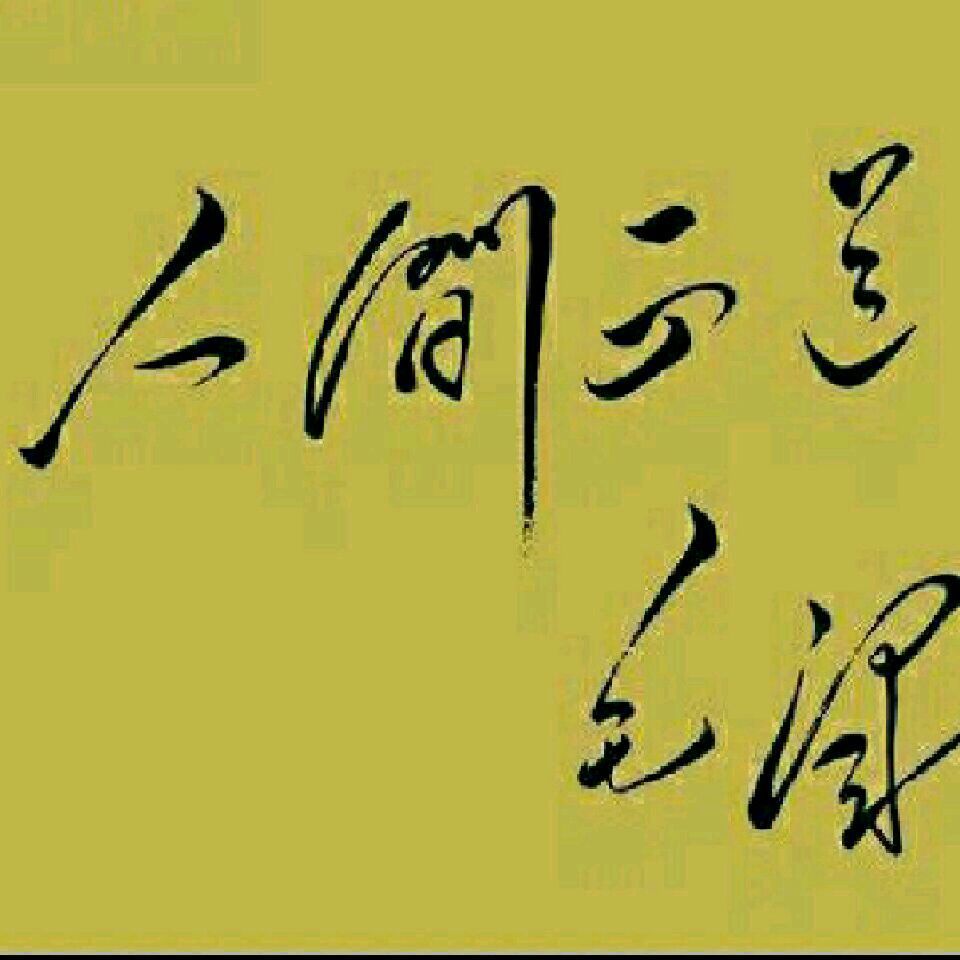 人間正道
毛澤